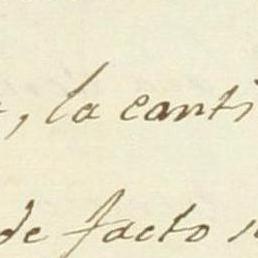 , la canti
de facto